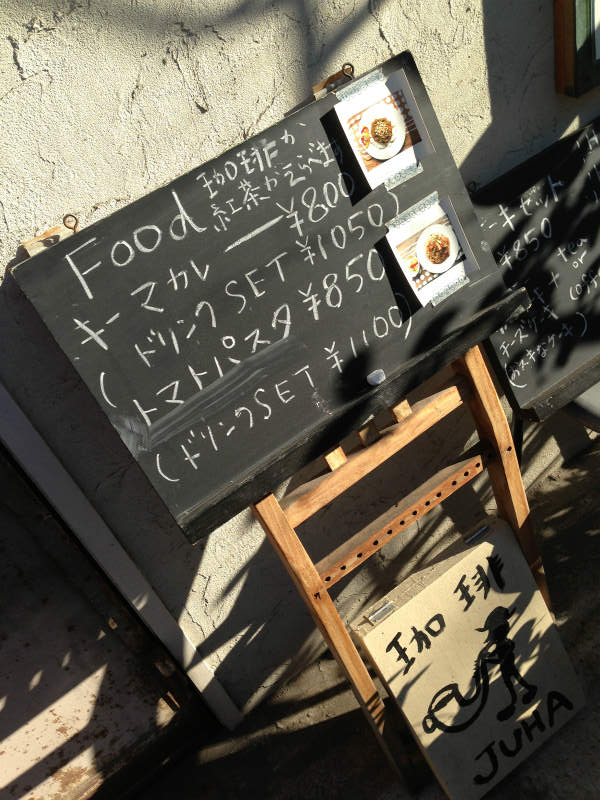 Food 珈琲か
紅茶がえらべます
キーマカレー ¥800
(ドリンクSET ¥1050)
トマトパスタ ¥850
(ドリンクSET ¥1100)
ーキセット
¥850
tea
or
coffee
チーズケーキ
(おスキなケーキ)
珈琲
JUHA